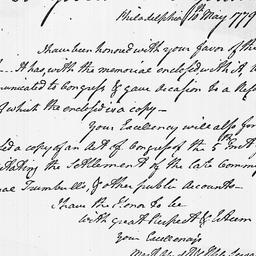 Philadelphia 10th May 1779
I have been honored with your favor of the
It has, with the memorial enclosed with it,
municated to Congress & gave occasion to a Reso
of which the enclosed is a copy—
Your Excellency will also
ed a copy of an Act of Congress of the 5 Inst
itating the Settlement of the late Commi
nal Trumbulls & other public Accounts—
I have the Honor to be
with great Respect & Esteem
Your Excellencys